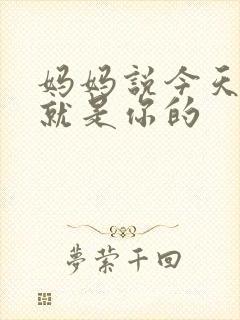 妈妈説今天
就是你的
夢萦千回